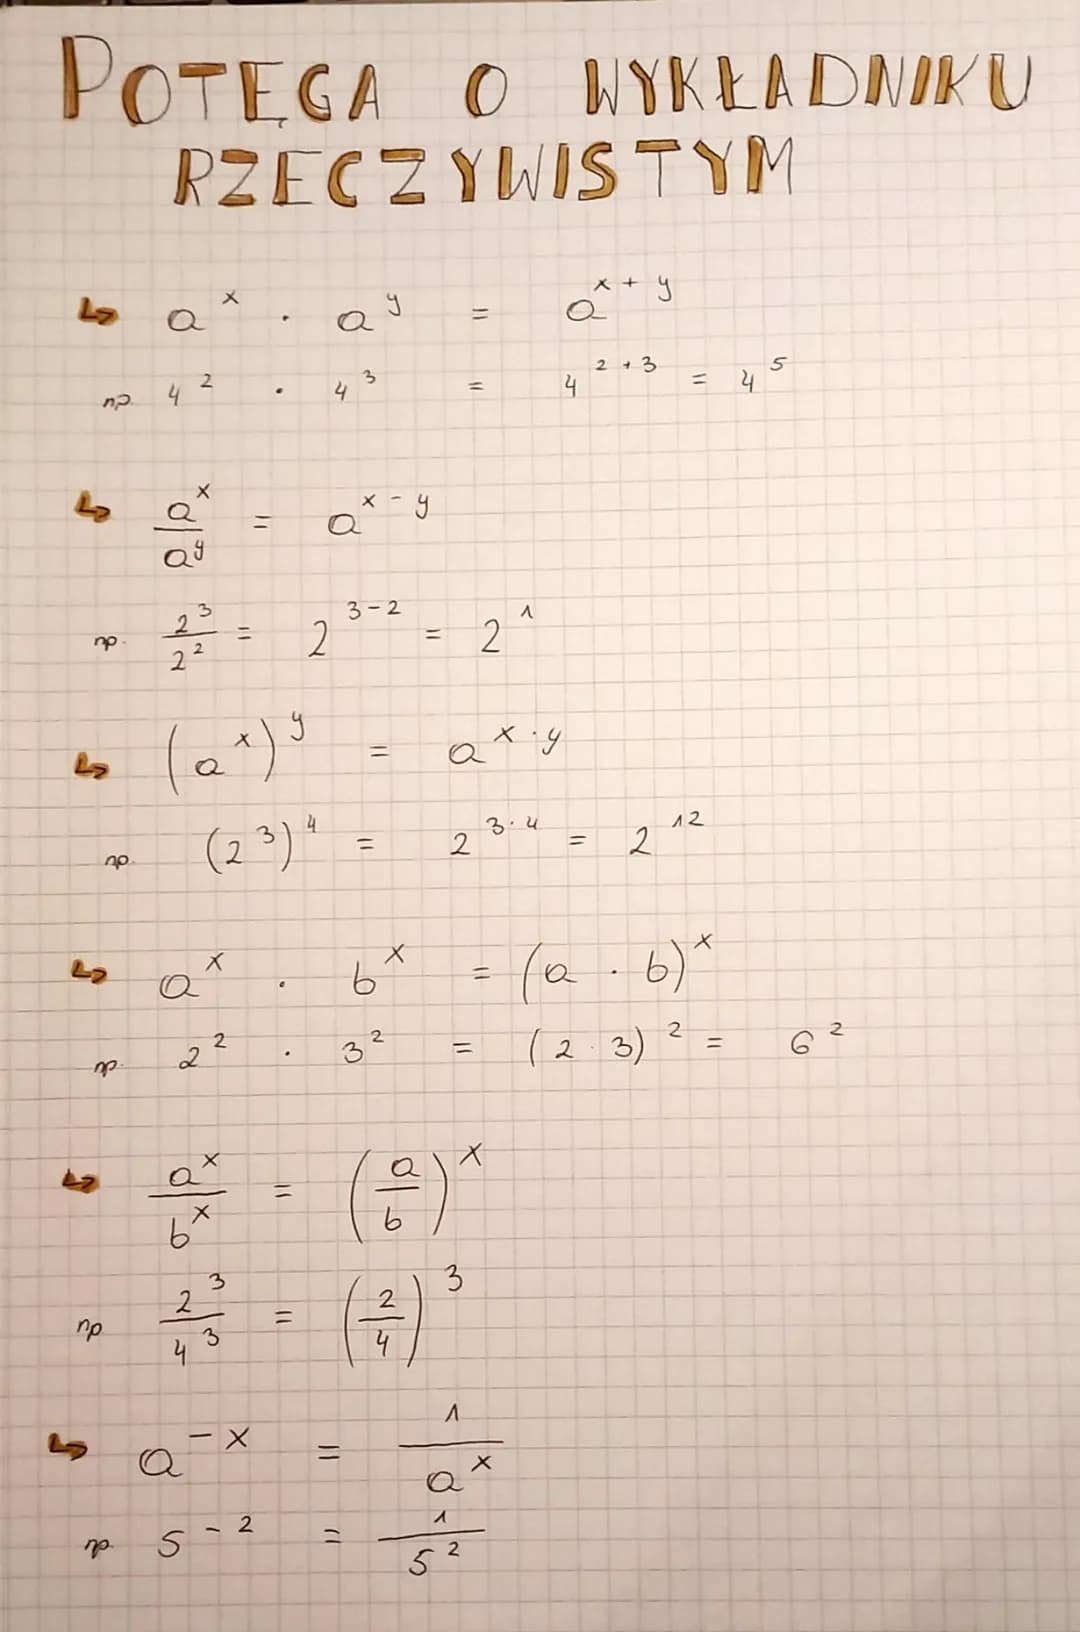 POTĘGA O WYKŁADNIKU
RZECZYWISTYM
↳ aˣ · aʸ = aˣ⁺ʸ
np. 4² · 4³ = 4²⁺³ = 4⁵
↳ aˣ/aʸ = aˣ⁻ʸ
np. 2³/2² = 2³⁻² = 2¹
↳ (aˣ)ʸ = a^(x·y)
np. (2³)⁴ = 2^(3·4) = 2¹²
↳ aˣ · bˣ = (a · b)ˣ
np. 2² · 3² = (2 · 3)² = 6²
↳ aˣ/bˣ = (a/b)ˣ
np 2³/4³ = (2/4)³
↳ a⁻ˣ = 1/aˣ
np. 5⁻² = 1/5²